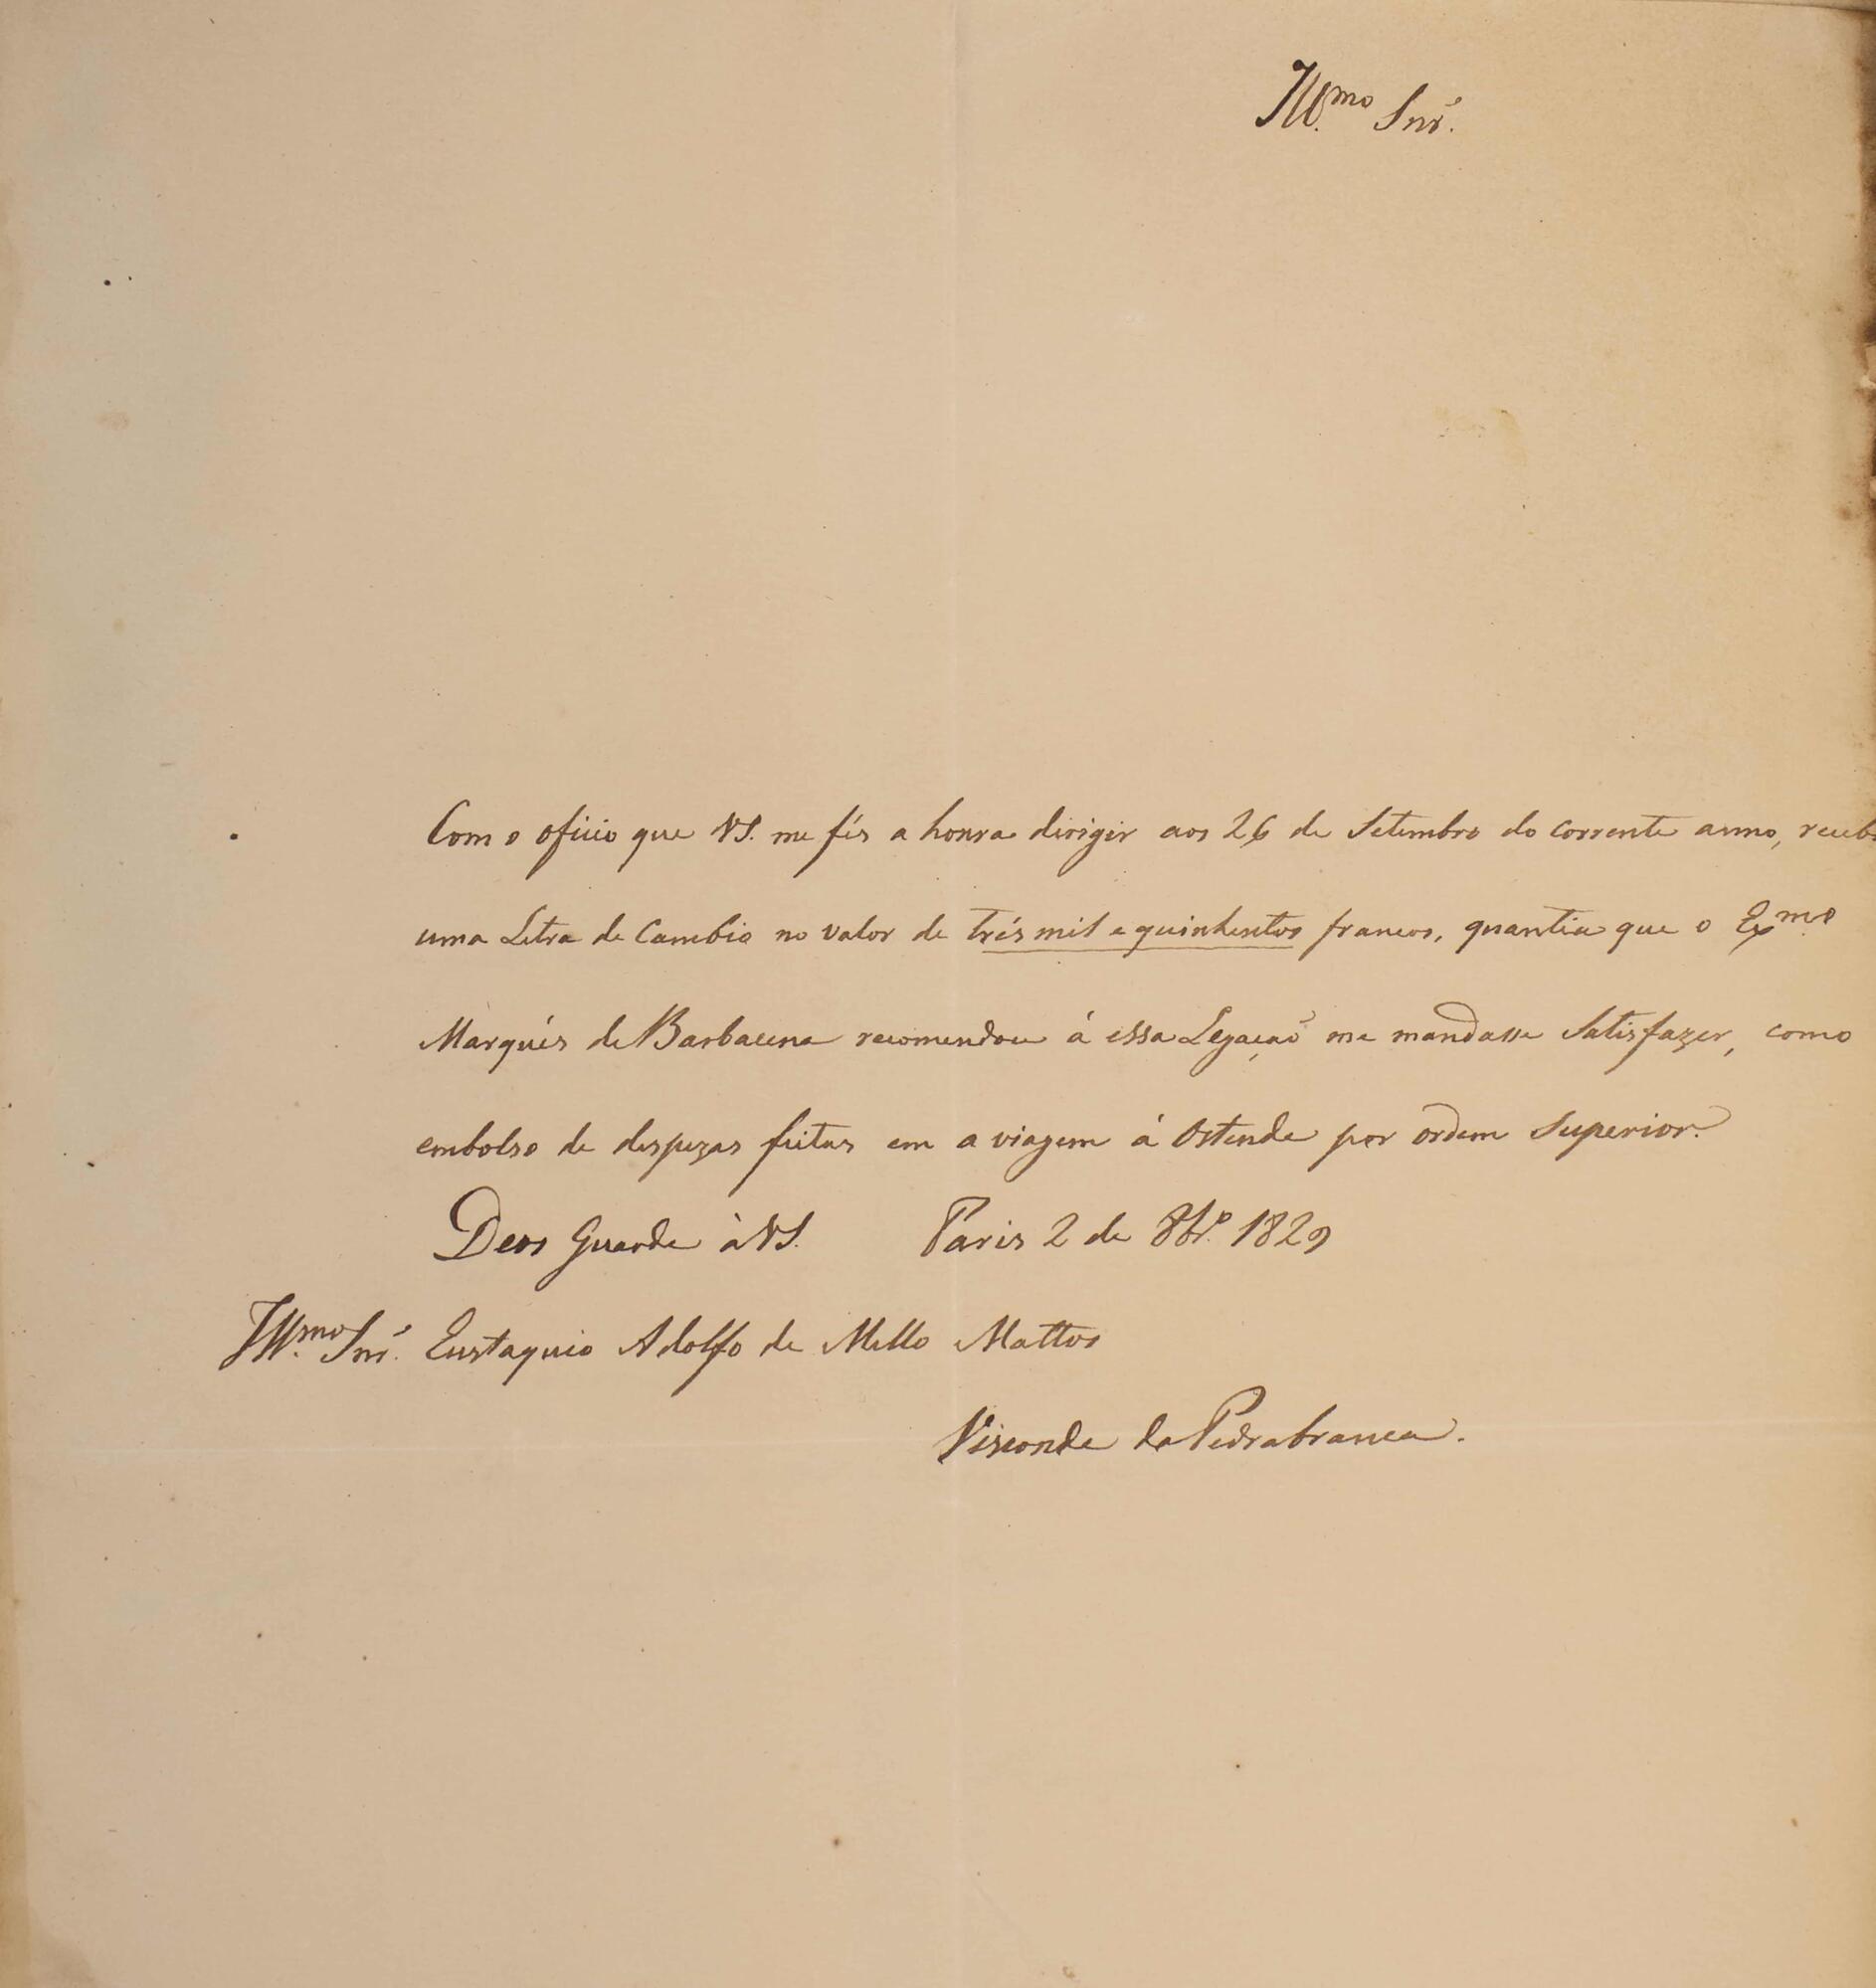 Ill.mo Snr.
Com o oficio que VS. me fés a honra dirigir aos 26 de Setembro do corrente anno, recebi
uma Letra de Cambio no valor de trés mil e quinhentos francos, quantia que o Exmo
Marqués de Barbacena recomendou á essa Legação me mandasse satisfazer, como
embolso de despezas feitas em a viagem á Ostende por ordem Superior.
Deos Guarde à VS. Paris 2 de 8br.o 1829
Ill.mo Snr. Eustaquio Adolfo de Mello Mattos
Visconde da Pedrabranca.